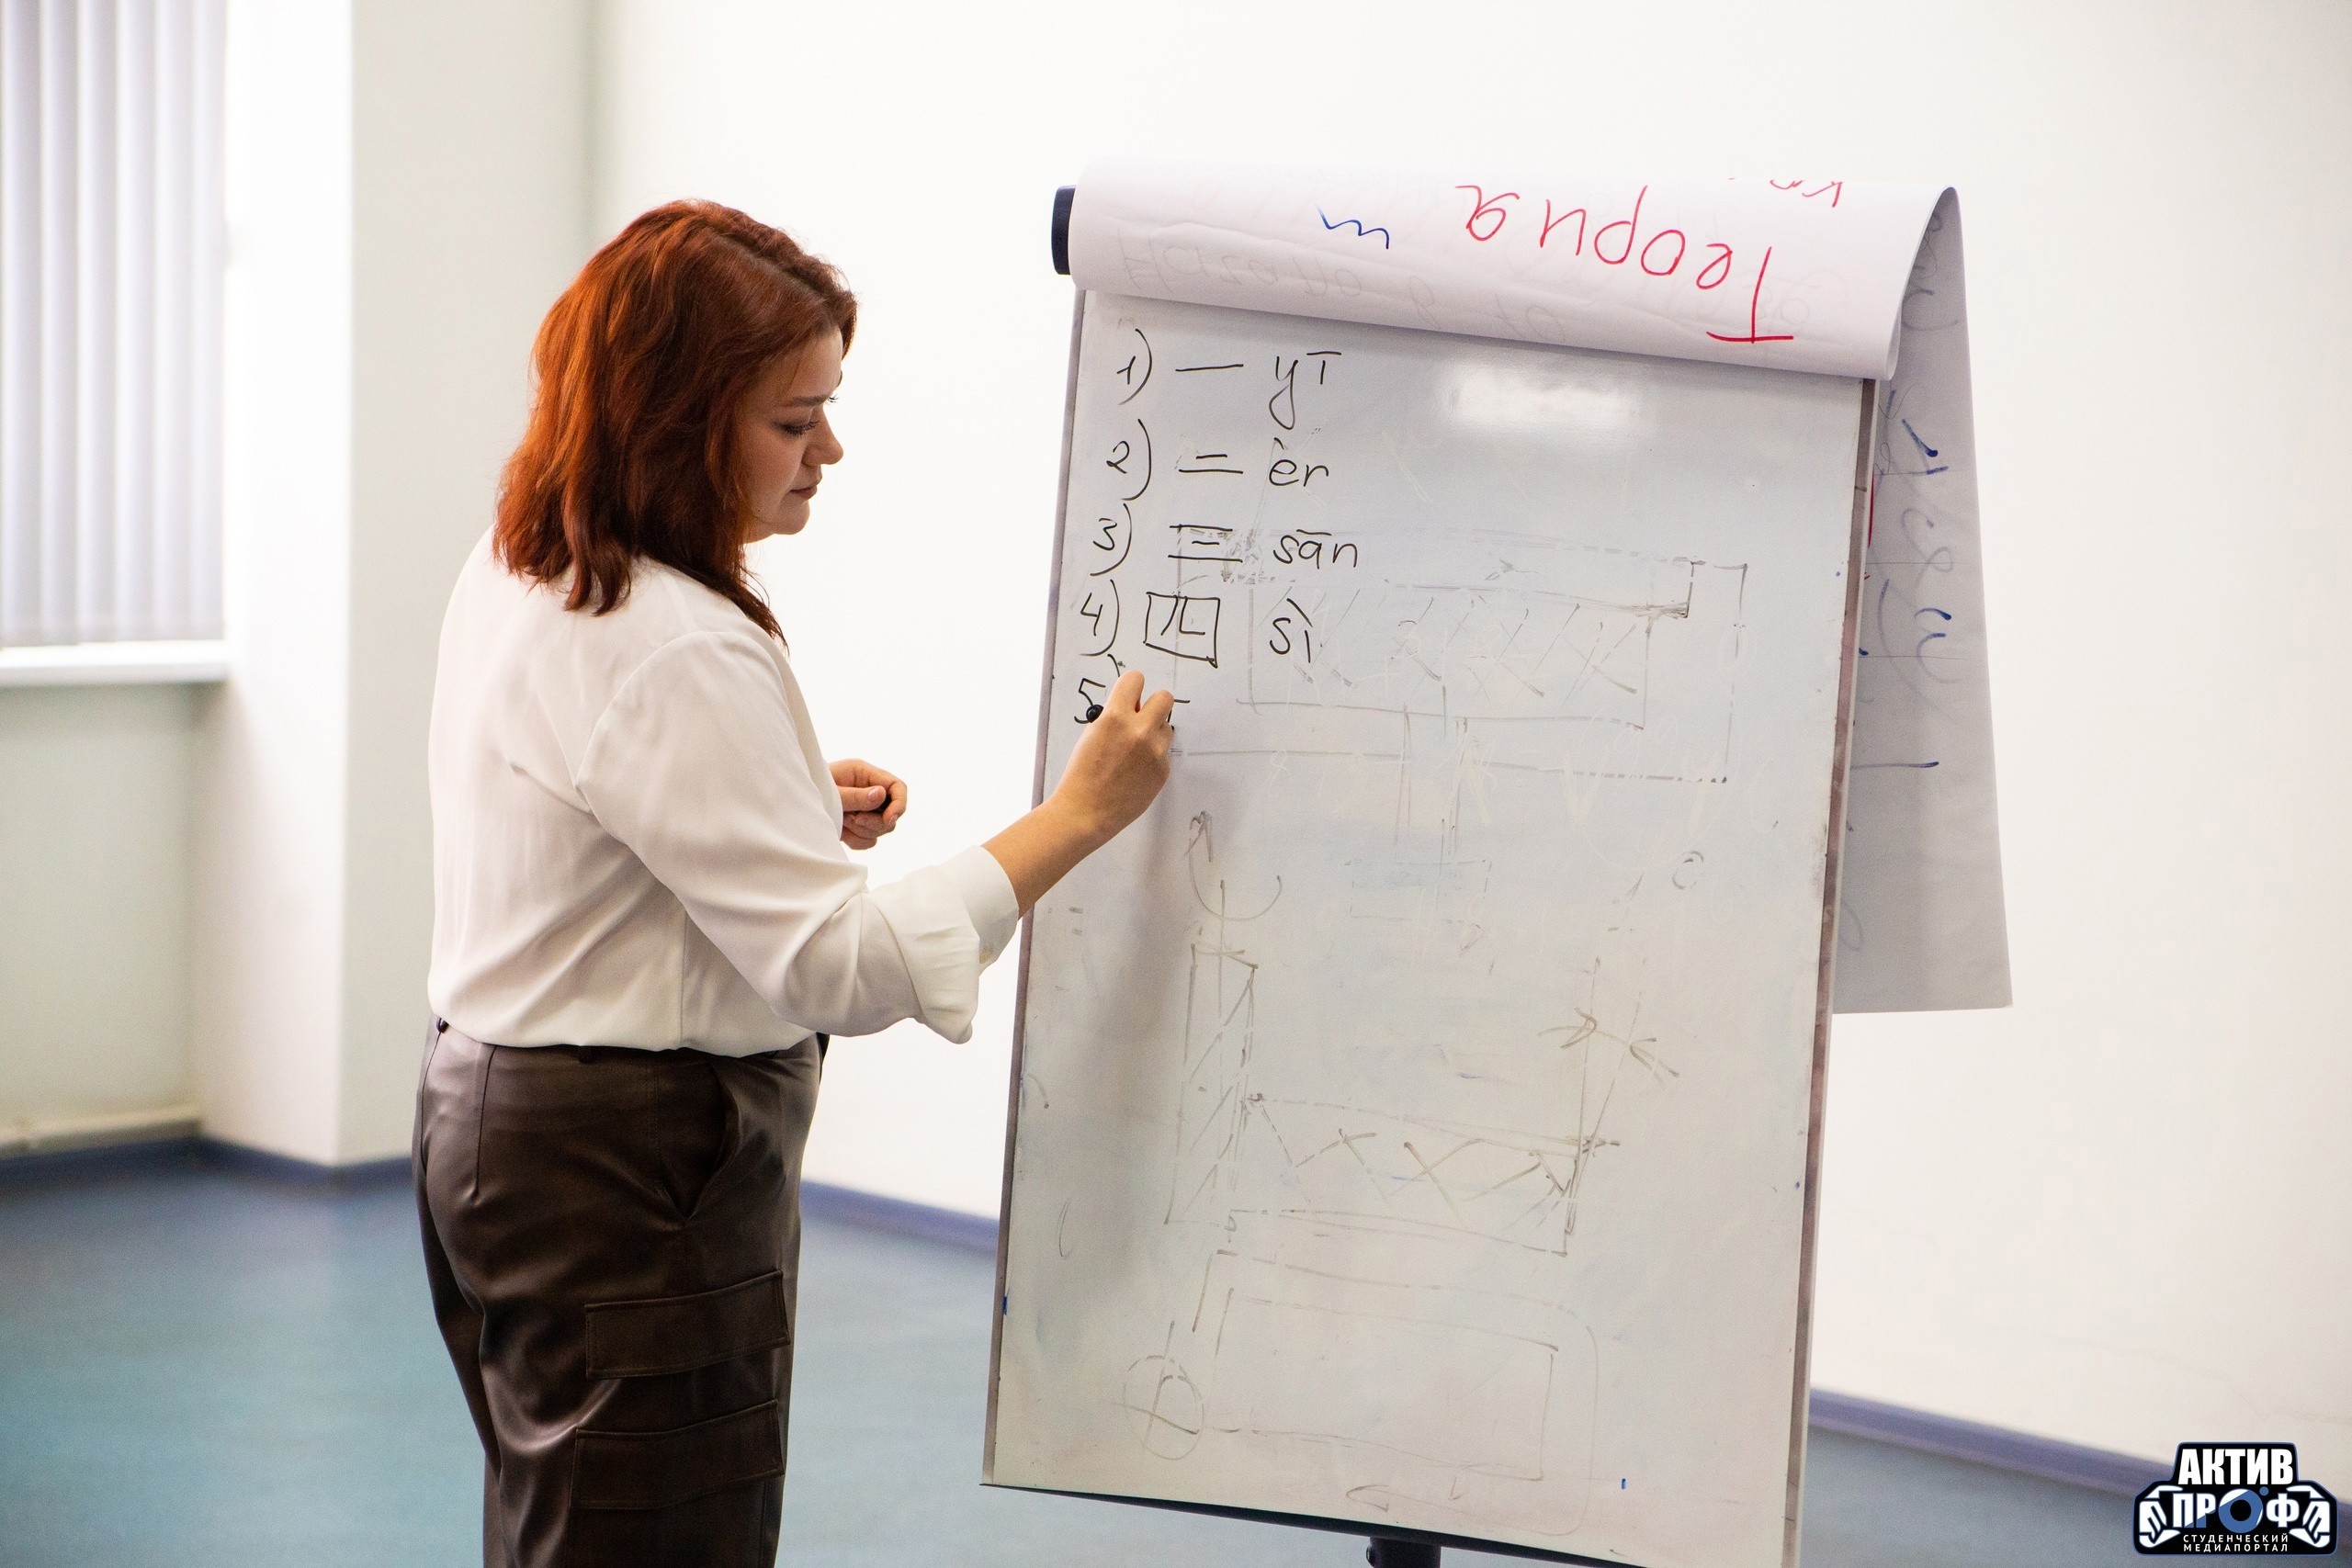 Теория
1) 一 yī
2) 二 èr
3) 三 sān
4) 四 sì
5)
АКТИВ
ПРОФ
СТУДЕНЧЕСКИЙ
МЕДИАПОРТАЛ